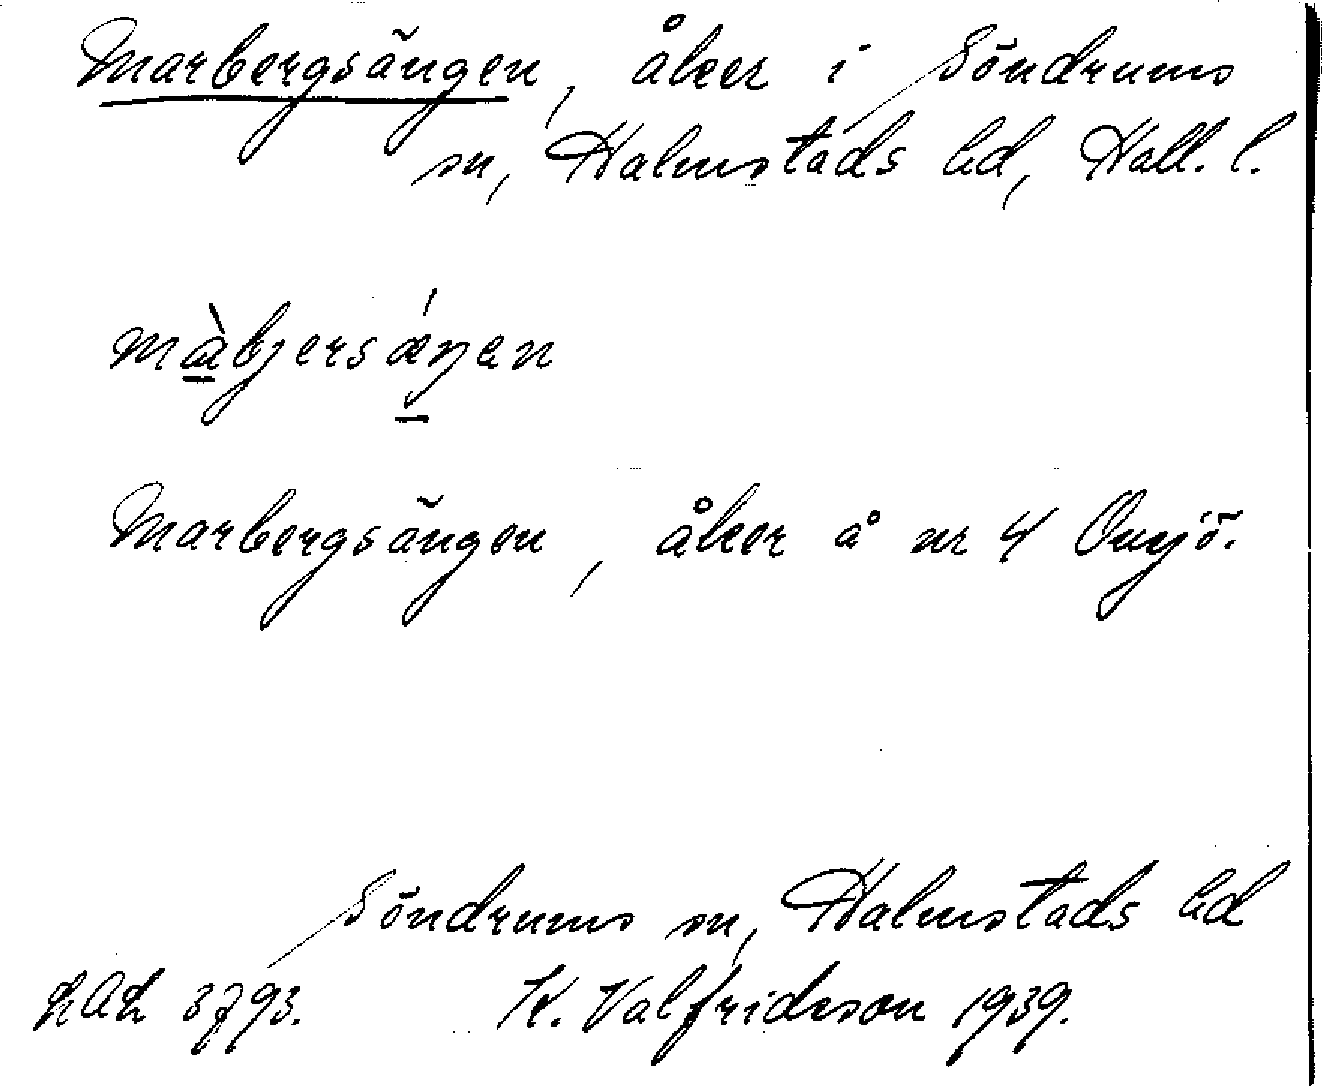 Marbergsängen, åker i Söndrums
sn, Halmstads hd, Hall. l.
màbjersǽŋen
Marbergsängen, åker å nr 4 Onsjö.
Söndrums sn, Halmstads hd
LAL 3793. K. Valfridsson 1939.